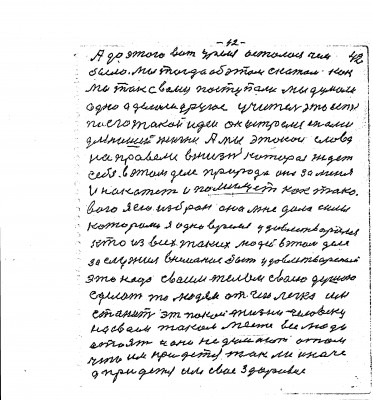 - 42 -
А до этого вот время осталося чем 42
было. Мы тогда об этом сказали как
мы так с вами поступали мы думали
одно а делали другое учитель это есть
после такой идеи он
жизни А мы этой слова
направели в жизнь которая ждет
себя. в этом деле природа она за меня
и накажет и помилует как тако
вого я ею избран она мне дала силы
которыми я одно время удовлетворялся
что из всех таких людей в этом деле
заслужил внимание быть удовлетворенной
это надо своим телом своею душою
сделать то людям от чего легко им
станит эт покой жизни человеку
на своем таком месте все люди
стоят и они не думают о том
что им придется так ли иначе
а придется им свое здоровие